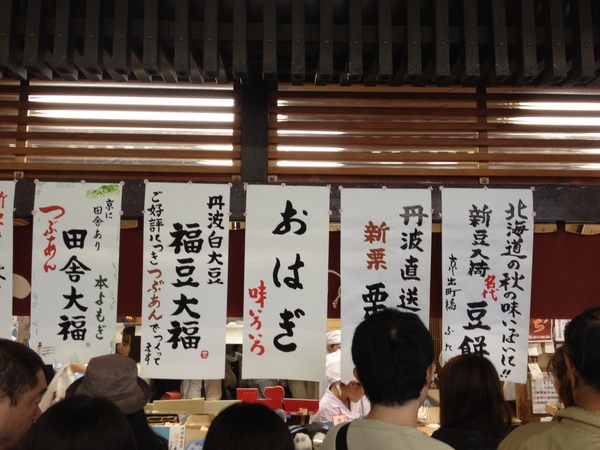 北海道の秋の味いっぱいに!!
新豆入荷
名代
豆餅
京・出町橋 ふたば
丹波直送
新栗
栗
おはぎ
味いろいろ
丹波白大豆
福豆大福
ご好評につきつぶあんでつくって
ます
京に
田舎あり
本よもぎ
田舎大福
つぶあん